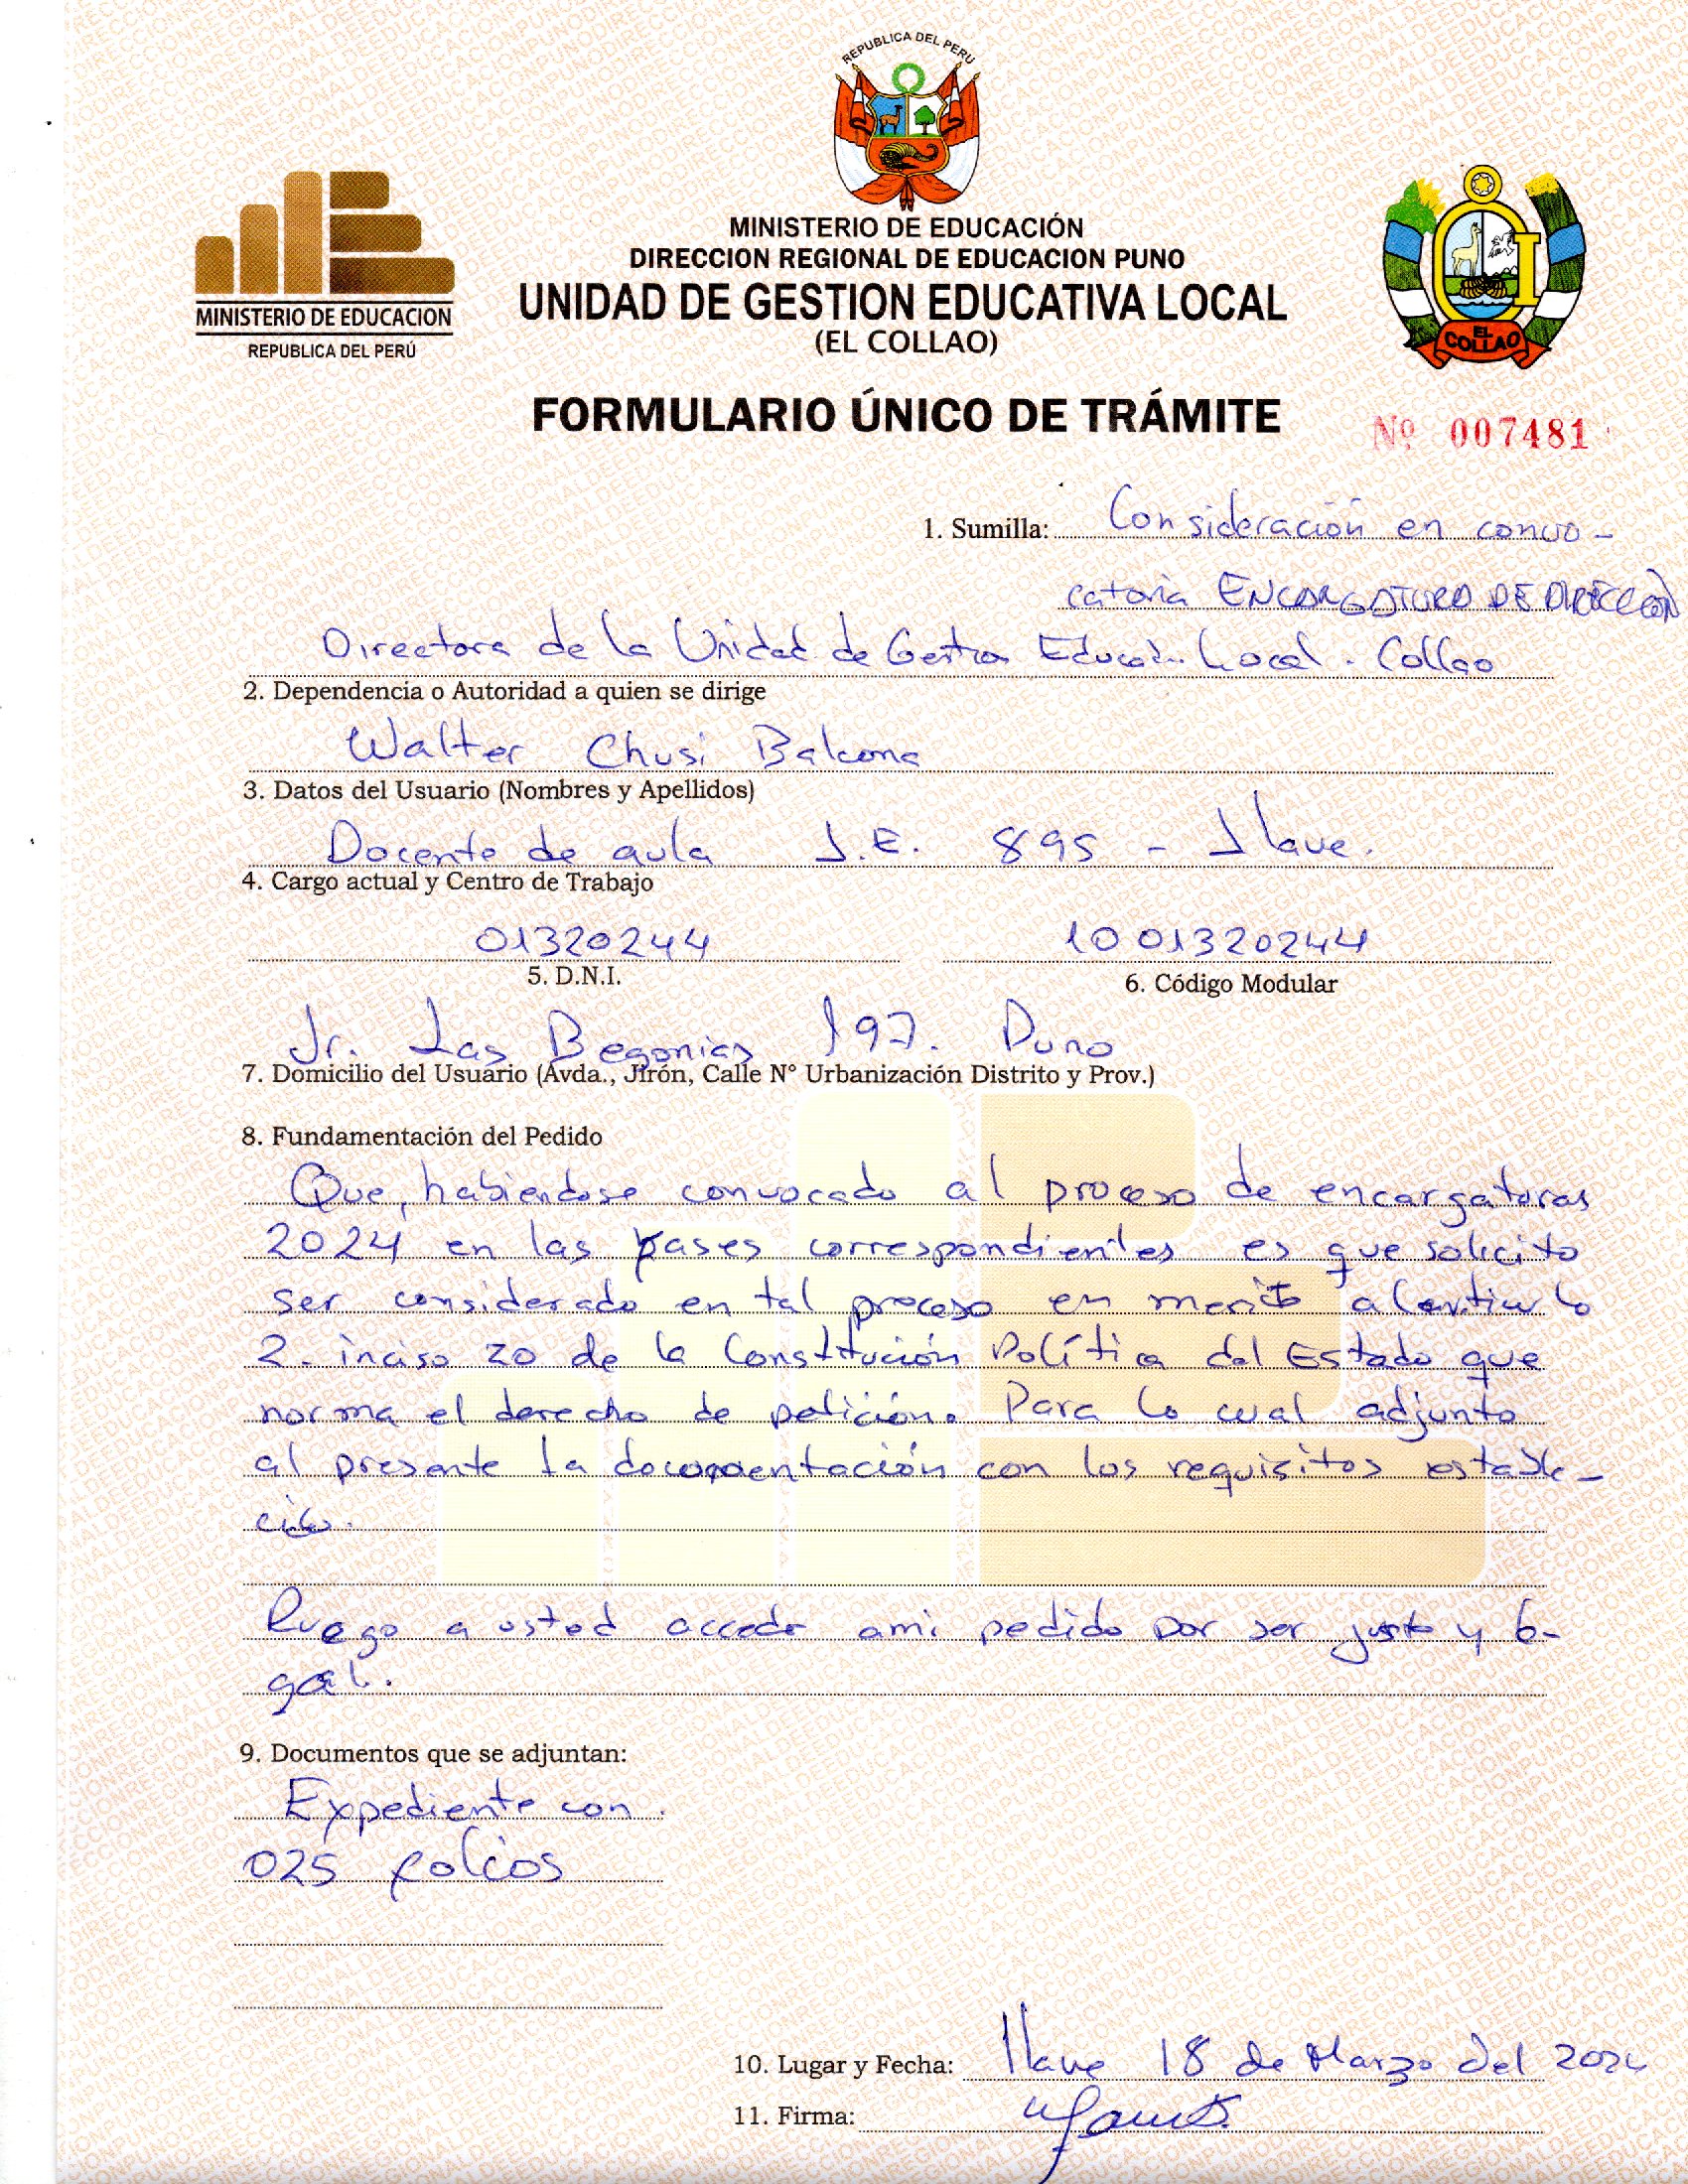 REPUBLICA DEL PERU
MINISTERIO DE EDUCACIÓN
DIRECCION REGIONAL DE EDUCACION PUNO
UNIDAD DE GESTION EDUCATIVA LOCAL
(EL COLLAO)
MINISTERIO DE EDUCACION
REPUBLICA DEL PERÚ
EL COLLAO
FORMULARIO ÚNICO DE TRÁMITE
Nº 007481
1. Sumilla: Consideración en convo-
catoria ENCARGATURA DE DIRECCIÓN
Directora de la Unidad de Gestion Educat. Local. Collao
2. Dependencia o Autoridad a quien se dirige
Walter Chusi Balcona
3. Datos del Usuario (Nombres y Apellidos)
Docente de aula I.E. 895 - Ilave.
4. Cargo actual y Centro de Trabajo
01320244 1001320244
5. D.N.I. 6. Código Modular
Jr. Las Begonias 197. Puno
7. Domicilio del Usuario (Avda., Jirón, Calle N° Urbanización Distrito y Prov.)
8. Fundamentación del Pedido
Que, habiendose convocado al proceso de encargaturas
2024 en las bases correspondientes es que solicito
ser considerado en tal proceso en merito al articulo
2. inciso 20 de la Constitución Política del Estado que
norma el derecho de petición. Para lo cual adjunto
al presente la documentación con los requisitos estable-
cido.
Ruego a usted acceda a mi pedido por ser justo y le-
gal.
9. Documentos que se adjuntan:
Expediente con
025 folios
10. Lugar y Fecha: Ilave 18 de Marzo del 2024
11. Firma: